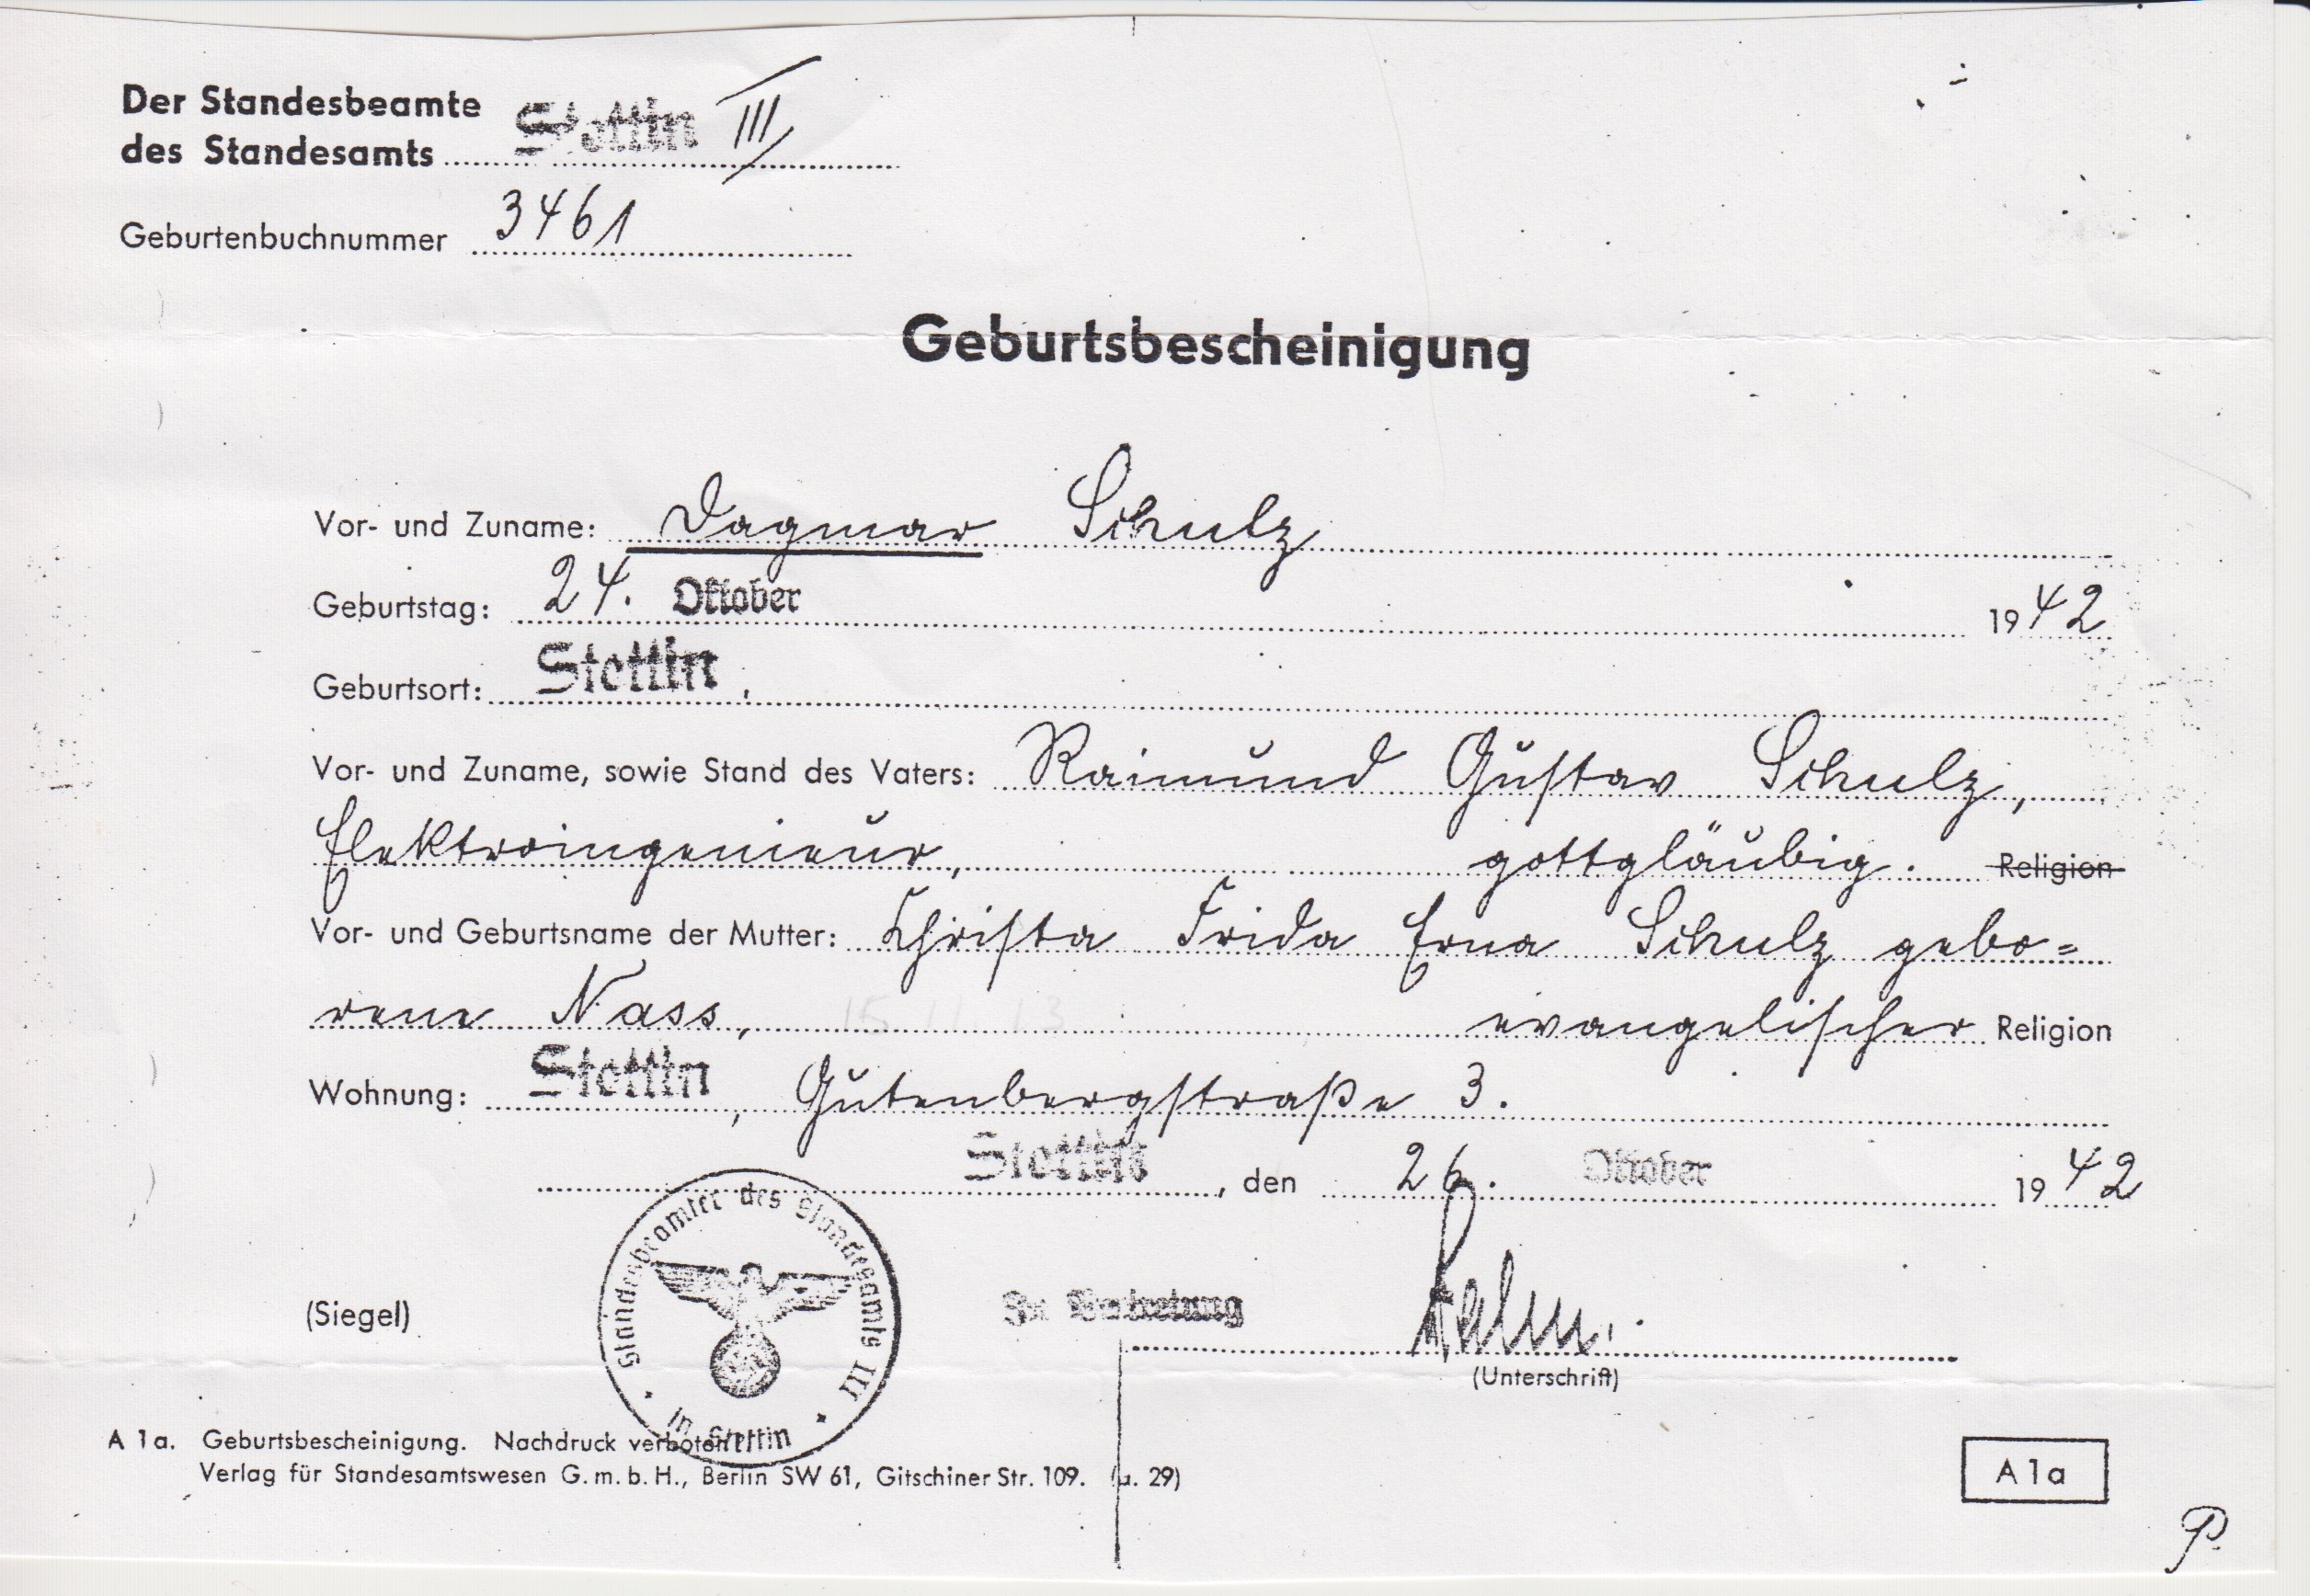 Der Standesbeamte
des Standesamts Stettin III
Geburtenbuchnummer 3461
Geburtsbescheinigung
Vor- und Zuname: Dagmar Schulz
Geburtstag: 24. Oktober 1942
Geburtsort: Stettin,
Vor- und Zuname, sowie Stand des Vaters: Raimund Gustav Schulz,
Elektroingenieur, gottgläubig. Religion
Vor- und Geburtsname der Mutter: Christa Frida Erna Schulz gebo=
rene Nass, 15 11 13 evangelischer Religion
Wohnung: Stettin, Gutenbergstraße 3.
Stettin, den 26. Oktober 1942
Standesbeamter des Standesamts III
in Stettin
(Siegel) In Vertretung
(Unterschrift)
A 1a. Geburtsbescheinigung. Nachdruck verboten
Verlag für Standesamtswesen G.m.b.H., Berlin SW 61, Gitschiner Str. 109. (u. 29)
A 1a
P.